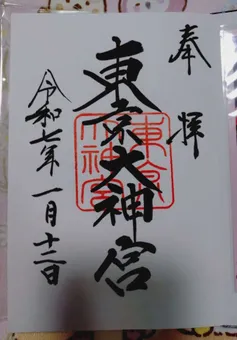 奉拝
東京大神宮
東京大神宮
令和七年一月十二日